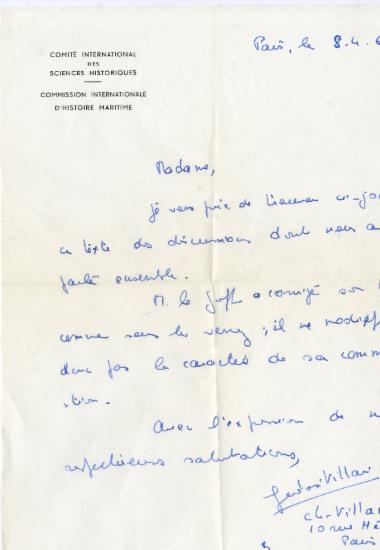 COMITÉ INTERNATIONAL
DES
SCIENCES HISTORIQUES
COMMISSION INTERNATIONALE
D'HISTOIRE MARITIME
Paris, le 8.4.6
Madame,
je vous prie de trouver ci-joi
ce texte des discussions dont nous a
parlé ensemble.
M. le a corrigé son
comme vous le verrez ; il ne modifie
donc pas le caractère de sa comm
tion.
Avec l'expression de m
respectueuses salutations,
Villai
Ch. Villai
10 rue Hé
Paris